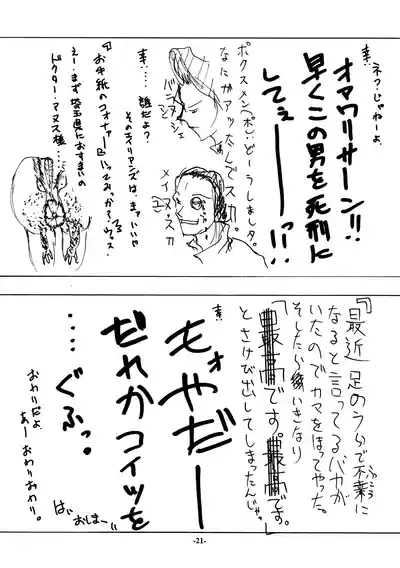 素:ネつじゃねーよ
オマワリサーン!!
早くこの男を死刑に
してぇーーい!!
ボクスメンペボし:どーうしましタ。
なにかアッたんでスカ?
素:…誰だよ?
そのエイリアンズは、まァいいや
『お手紙のコォナァー』いってみっか?ウス
えー、まず埼玉県におすまいの
ドクター・アヌス様…
『最近足のうらで不幸に
なると言ってるバカが
いたのでカマをほってやった。
そしたら後いきなり
「最高です。最高です。
とさけび出してしまったんじゃっ』
素:
もォやだーー
だれかコイツを
…ぐふっ。
おわりだよ、
あーおわりおわり。
はい
おしまー
-21-